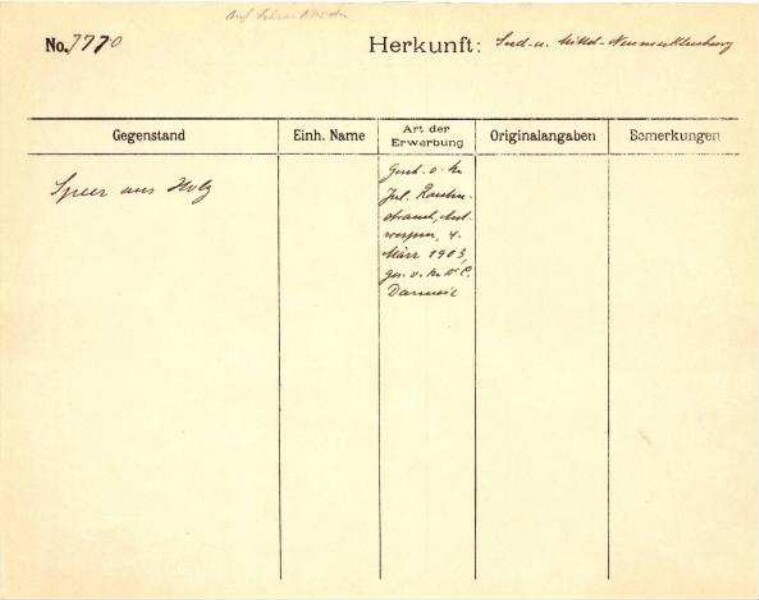 No. 7770
Herkunft: Süd- u. Mittel-Neumecklenburg
Gegenstand
Einh. Name
Art der
Erwerbung
Originalangaben
Bemerkungen
Speer aus Holz
Gesch. v. Hr
Jul.
Ant-
werpen, 4.
März 1903,
ges. v. Hr Dr C.